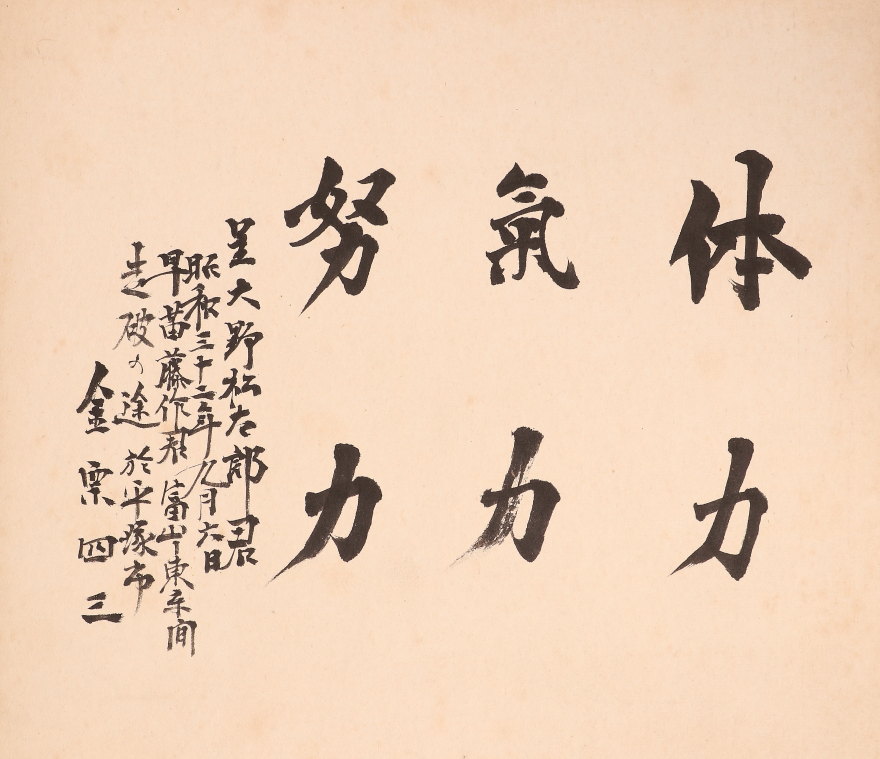 体力
氣力
努力
呈大野松太郎君
昭和三十二年九月六日
早苗藤作君富山東京間
走破の途於平塚市
金栗四三